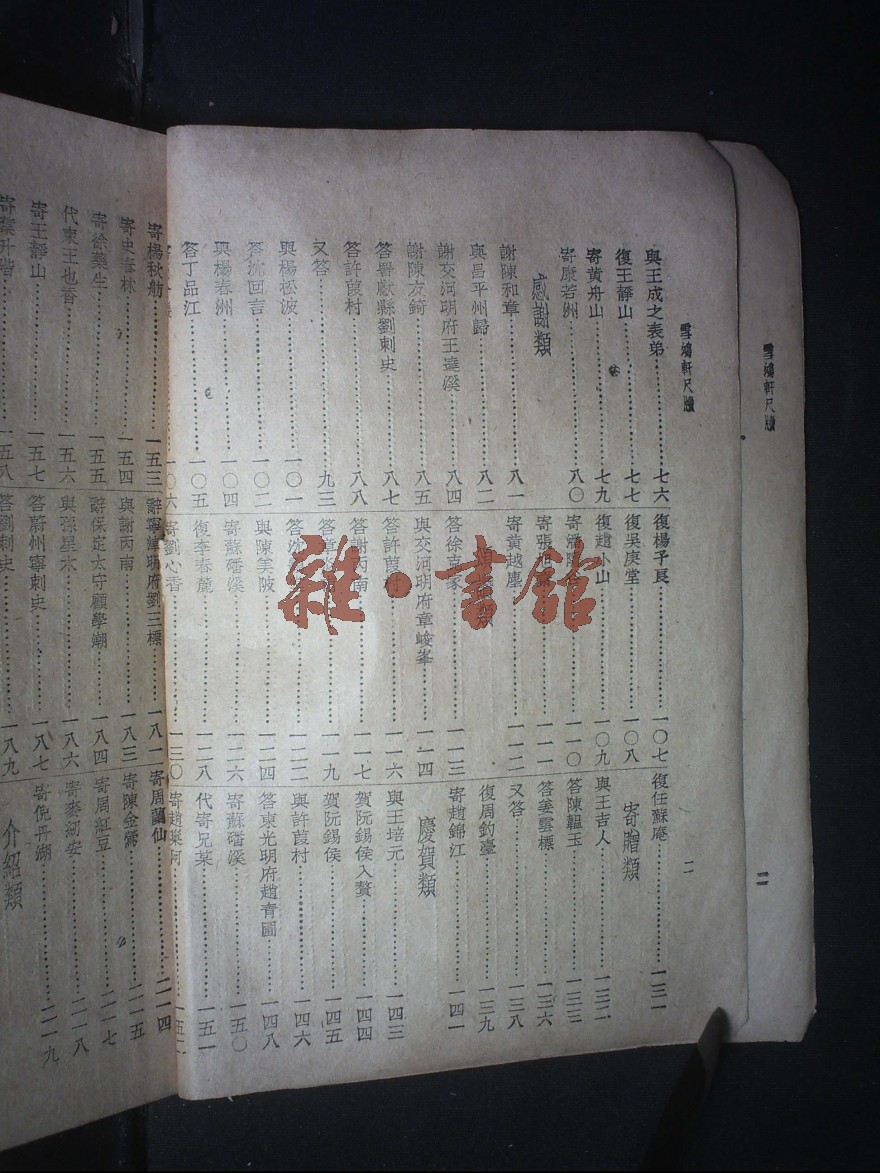 雪鴻軒尺牘
雪鴻軒尺牘
二
與王成之表弟 七六
復王靜山 七七
寄黃舟山 七九
寄康若洲 八〇
感謝類
謝陳和章 八一
與昌平州歸 八二
謝交河明府王達溪 八四
謝陳友錡 八五
答署獻縣劉刺史 八七
答許葭村 八八
又答 九三
與楊松波 一〇一
答沈回吉 一〇二
與楊春洲 一〇四
答丁品江 一〇五
一〇六
復楊予長 一〇七
復吳庚堂 一〇八
復趙小山 一〇九
寄潘 一一〇
寄張 一一一
寄黃越塵 一一二
類
答徐克家 一一三
與交河明府章峻峯 一一四
答許葭村 一一六
答謝丙南 一一七
答章 一一九
答沈 一二二
與陳美陂 一二四
寄蘇皤溪 一二六
復李春麓 一二八
寄劉心香 一三〇
復任蘇庵 一三一
寄贈類
與王吉人 一三二
答陳韞玉 一三三
答姜雲標 一三六
又答 一三八
復周釣臺 一三九
寄趙錦江 一四一
慶賀類
與王培元 一四三
賀阮錫侯入贅 一四四
賀阮錫侯 一四五
與許葭村 一四六
答東光明府趙青圃 一四八
寄蘇皤溪 一五〇
代寄兄某 一五一
寄趙 一五二
寄楊秋舫 一五三
寄史春林 一五四
寄徐藥生 一五五
代柬王也香 一五六
寄王靜山 一五七
寄葉升階 一五八
辭寧津明府劉三標 一八一
與謝丙南 一八三
辭保定太守顧學潮 一八四
與孫星木 一八六
答蔚州寧刺史 一八七
答劉刺史 一八九
寄周蘭仙 二一四
寄陳金 二一五
寄周紅豆 二一七
寄麥 安 二一八
寄倪丹湖 二一九
介紹類
雜·書館